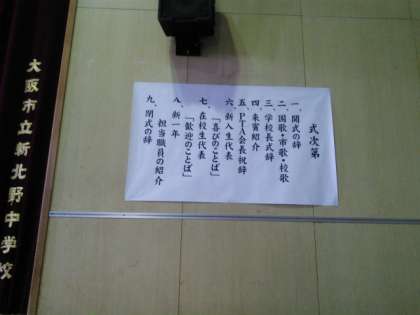 式次第
一、開式の辞
二、国歌・市歌・校歌
三、学校長式辞
四、来賓紹介
五、PTA会長祝辞
六、新入生代表
「喜びのことば」
七、在校生代表
「歓迎のことば」
八、新一年
担当職員の紹介
九、閉式の辞
大阪市立新北野中学校